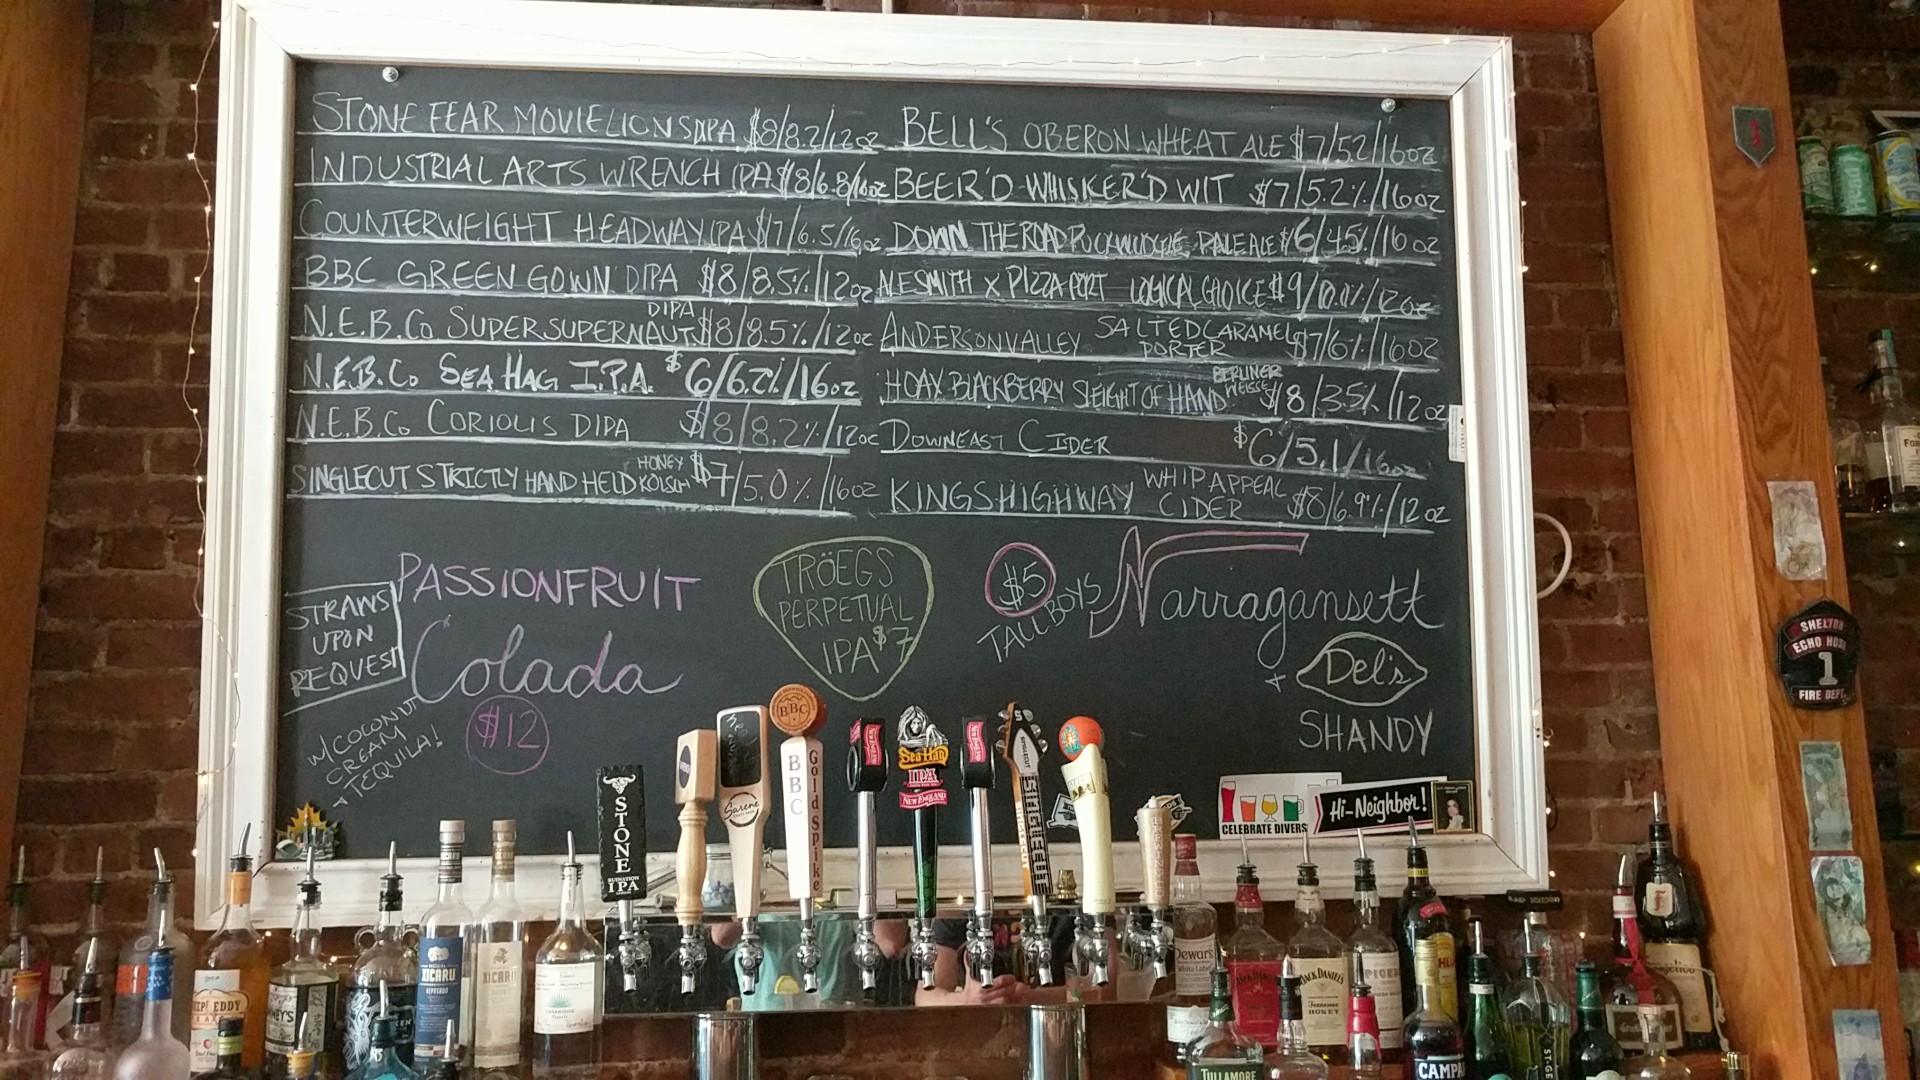 STONE FEAR MOVIE LIONS DIPA $8/8.2/12oz
INDUSTRIAL ARTS WRENCH IPA $8/6.8/16oz
COUNTERWEIGHT HEADWAY IPA $7/6.5/16oz
BBC GREEN GOWN DIPA $8/8.5%/12oz
N.E.B.Co SUPERSUPERNAUT DIPA $8/8.5%/12oz
N.E.B.Co SEA HAG I.P.A. $6/6.2%/16oz
N.E.B.Co CORIOLIS DIPA $8/8.2%/12oz
SINGLECUT STRICTLY HAND HELD HONEY KÖLSCH $7/5.0%/16oz
BELL'S OBERON WHEAT ALE $7/5.2/16oz
BEER'D WHISKER'D WIT $7/5.2%/16oz
DOWN THE ROAD PUKWUDGIE PALE ALE $6/4.5%/16oz
ALESMITH x PIZZA PORT LOGICAL CHOICE $9/10.1%/12oz
ANDERSON VALLEY SALTED CARAMEL PORTER $7/6%/16oz
HOAX BLACKBERRY SLEIGHT OF HAND BERLINER WEISSE $8/3.5%/12oz
DOWNEAST CIDER $6/5.1/16oz
KINGS HIGHWAY WHIP APPEAL CIDER $8/6.9%/12oz
STRAWS
UPON
REQUEST
PASSIONFRUIT
Colada
$12
W/ COCONUT
CREAM
+ TEQUILA!
TRÖEGS
PERPETUAL
IPA $7
$5
TALLBOYS
Narragansett
+ Del's
SHANDY
CELEBRATE DIVERS
Hi-Neighbor!
STONE
RUINATION
IPA
BBC
BBC
Gold Spike
Sea Hag
IPA
NEW ENGLAND
SINGLECUT
SHELTON
ECHO HOSE
1
FIRE DEPT.
XICARU
XICARU
Dewar's
White Label
JACK DANIEL'S
Tennessee
HONEY
TULLAMORE
CAMPA